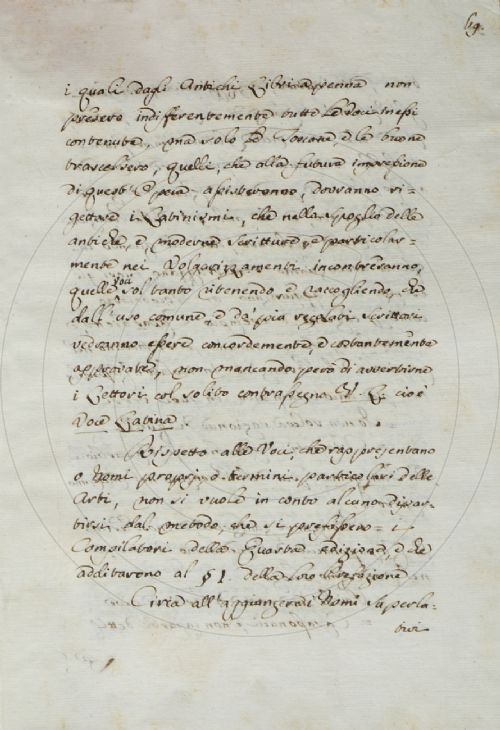 69.
i quali dagli Antichi Libri a penna non
presero indifferentemente tutte le Voci in essi
contenute, ma solo le Toscane, e le buone
trascelsero, quelli, che alla futura impressione
di quest' Opera assisteranno, dovranno ri=
gettare i Latinismi, che nello Spoglio delle
antiche, e moderne Scritture, e particolar=
mente nei Volgarizzamenti incontreranno,
quelle Voci sol tanto ritenendo, e raccogliendo, che
dall' uso comune, e da' più regolati Scrittori
vedranno essere concordemente, e costantemente
approvate, non mancando però di avvertirne
i Lettori col solito contrassegno V. L. cioè
Voce Latina.
Rispetto alle Voci, che rappresentano
o Nomi proprj, o termini particolari delle
Arti, non si vuole in conto alcuno dipar=
tirsi dal metodo, che si prefissero i
Compilatori della Quarta edizione, e che
additarono al § I. della loro Prefazione
Circa all' aggiungere i Nomi superla=
tivi